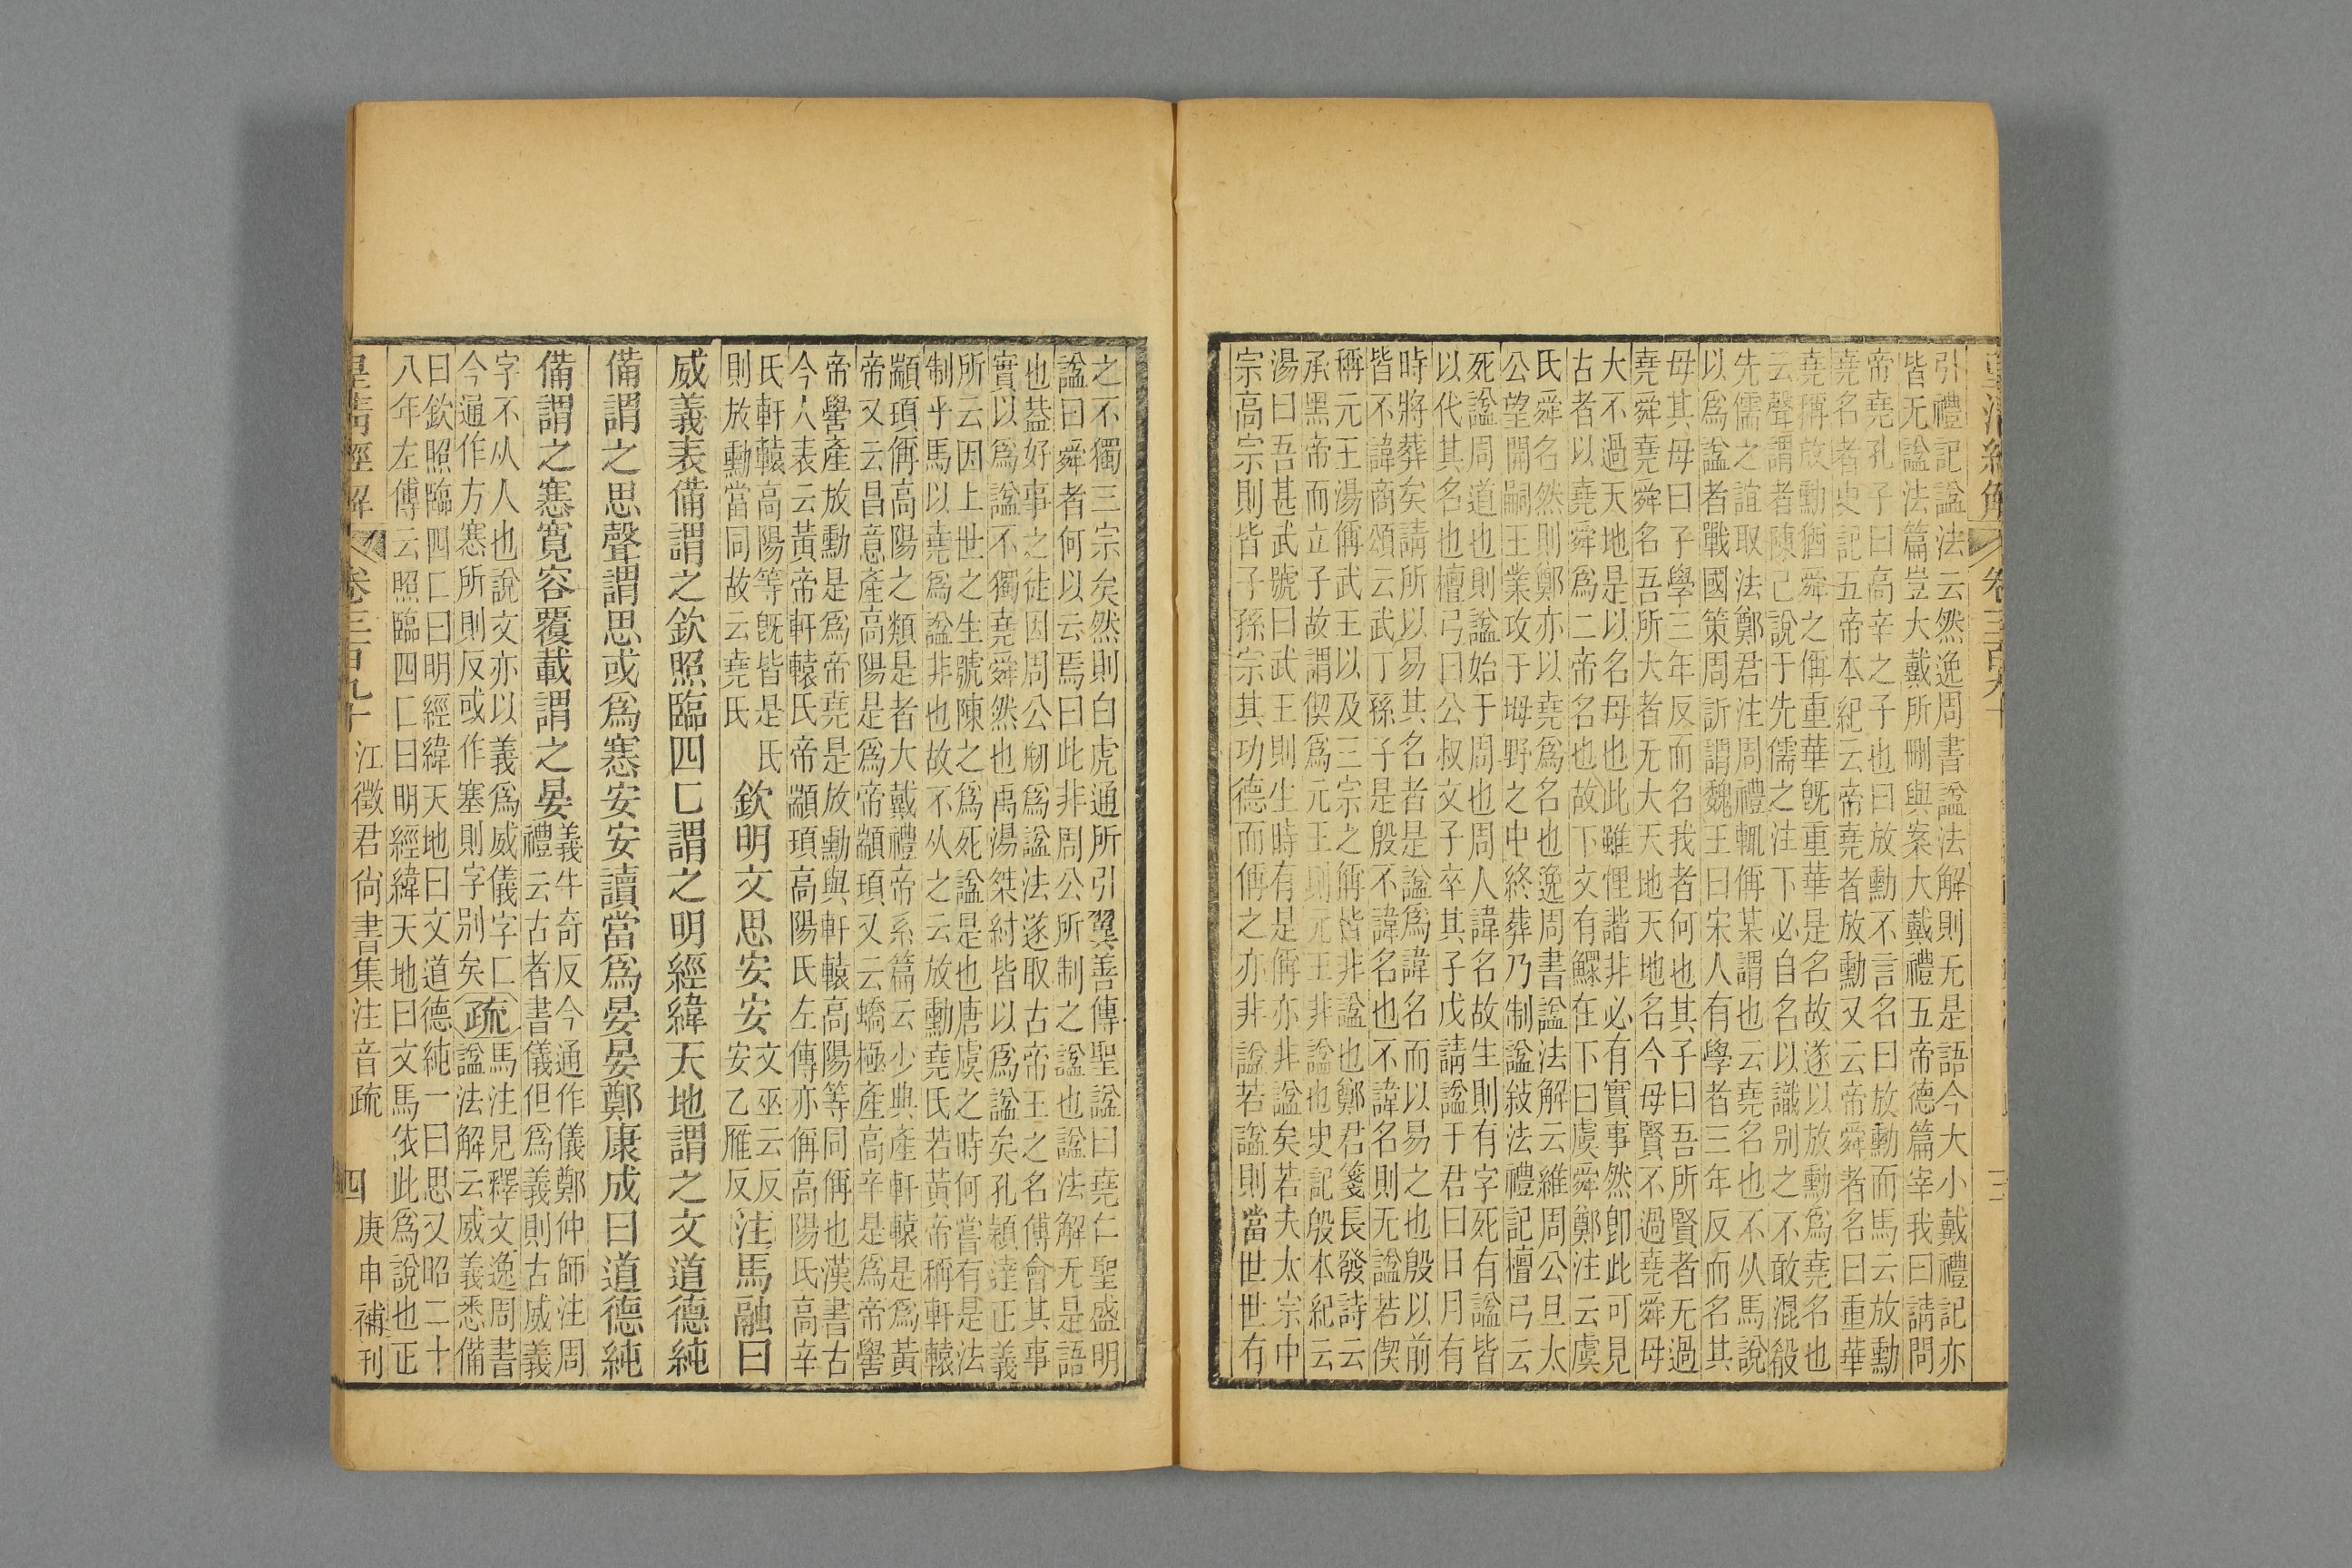 皇清經解 卷三百九十 三
引禮記諡法云然逸周書諡法解則无是語今大小戴禮記亦
皆无諡法篇豈大戴所刪與案大戴禮五帝德篇宰我曰請問
帝堯孔子曰高辛之子也曰放勳不言名曰放勳而馬云放勳
堯名者史記五帝本紀云帝堯者放勳又云帝舜者名曰重華
堯稱放勳猶舜之偁重華旣重華是名故遂以放勳爲堯名也
云聲謂者陳己說于先儒之注下必自名以識别之不敢混殽
先儒之誼取法鄭君注周禮輒偁某謂也云堯名也不从馬說
以爲諡者戰國策周訢謂魏王曰宋人有學者三年反而名其
母其母曰子學三年反而名我者何也其子曰吾所賢者无過
堯舜堯舜名吾所大者无大天地天地名今母賢不過堯舜母
大不過天地是以名母也此雖俚諧非必有實事然卽此可見
古者以堯舜爲二帝名也故下文有鰥在下曰虞舜鄭注云虞
氏舜名然則鄭亦以堯爲名也逸周書諡法解云維周公旦太
公望開嗣王業攻于坶野之中終葬乃制諡敍法禮記檀弓云
死諡周道也則諡始于周也周人諱名故生則有字死有諡皆
以代其名也檀弓曰公叔文子卒其子戍請諡于君曰日月有
時將葬矣請所以易其名者是諡爲諱名而以易之也殷以前
皆不諱商頌云武丁孫子是殷不諱名也不諱名則无諡若偰
稱元王湯偁武王以及三宗之偁皆非諡也鄭君箋長發詩云
承黑帝而立子故謂偰爲元王則元王非諡也史記殷本紀云
湯曰吾甚武號曰武王則生時有是偁亦非諡矣若夫太宗中
宗高宗則皆子孫宗其功德而偁之亦非諡若諡則當世世有
之不獨三宗矣然則白虎通所引翼善傳聖諡曰堯仁聖盛明
諡曰舜者何以云焉曰此非周公所制之諡也諡法解无是語
也葢好事之徒因周公剏爲諡法遂取古帝王之名傅會其事
實以爲諡不獨堯舜然也禹湯桀紂皆以爲諡矣孔穎達正義
所云因上世之生號陳之爲死諡是也唐虞之時何嘗有是法
制乎馬以堯爲諡非也故不从之云放勳堯氏若黃帝稱軒轅
顓頊偁高陽之類是者大戴禮帝系篇云少典產軒轅是爲黃
帝又云昌意產高陽是爲帝顓頊又云蟜極產高辛是爲帝嚳
帝嚳產放勳是爲帝堯是放勳與軒轅高陽等同偁也漢書古
今人表云黃帝軒轅氏帝顓頊高陽氏左傳亦偁高陽氏高辛
氏軒轅高陽等旣皆是氏
則放勳當同故云堯氏
欽明文思安安文巫云反
安乙雁反注馬融曰
威義表備謂之欽照臨四匸謂之明經緯天地謂之文道德純
備謂之思聲謂思或爲㥶安安讀當爲晏晏鄭康成曰道德純
備謂之㥶寬容覆載謂之晏義牛奇反今通作儀鄭仲師注周
禮云古者書儀但爲義則古威義
字不从人也說文亦以義爲威儀字匸
今通作方㥶所則反或作塞則字别矣疏馬注見釋文逸周書
諡法解云威義悉備
曰欽照臨四匸曰明經緯天地曰文道德純一曰思又昭二十
八年左傳云照臨四匸曰明經緯天地曰文馬依此爲說也正
皇淸經解 卷三百九十 江徵君尙書集注音疏 四 庚申補刊